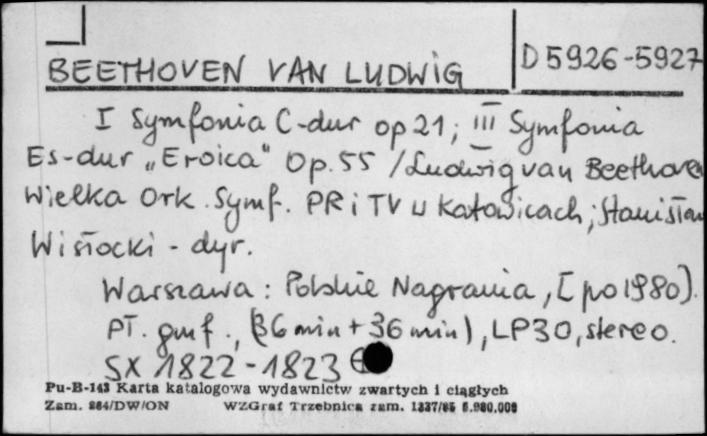 BEETHOVEN VAN LUDWIG D 5926-5927
I Symfonia C-dur op 21; III Symfonia
Es-dur „Eroica" Op. 55 / Ludwig van Beethoven
Wielka Ork. Symf. PR i TV w Katowicach; Stanisław
Wisłocki - dyr.
Warszawa: Polskie Nagrania, [po 1980].
pł. gmf., (36 min + 36 min), LP30, stereo.
SX 1822-1823
Pu-B-143 Karta katalogowa wydawnictw zwartych i ciągłych
Zam. 884/DW/ON WZGraf Trzebnica zam. 1337/85 5.980.000